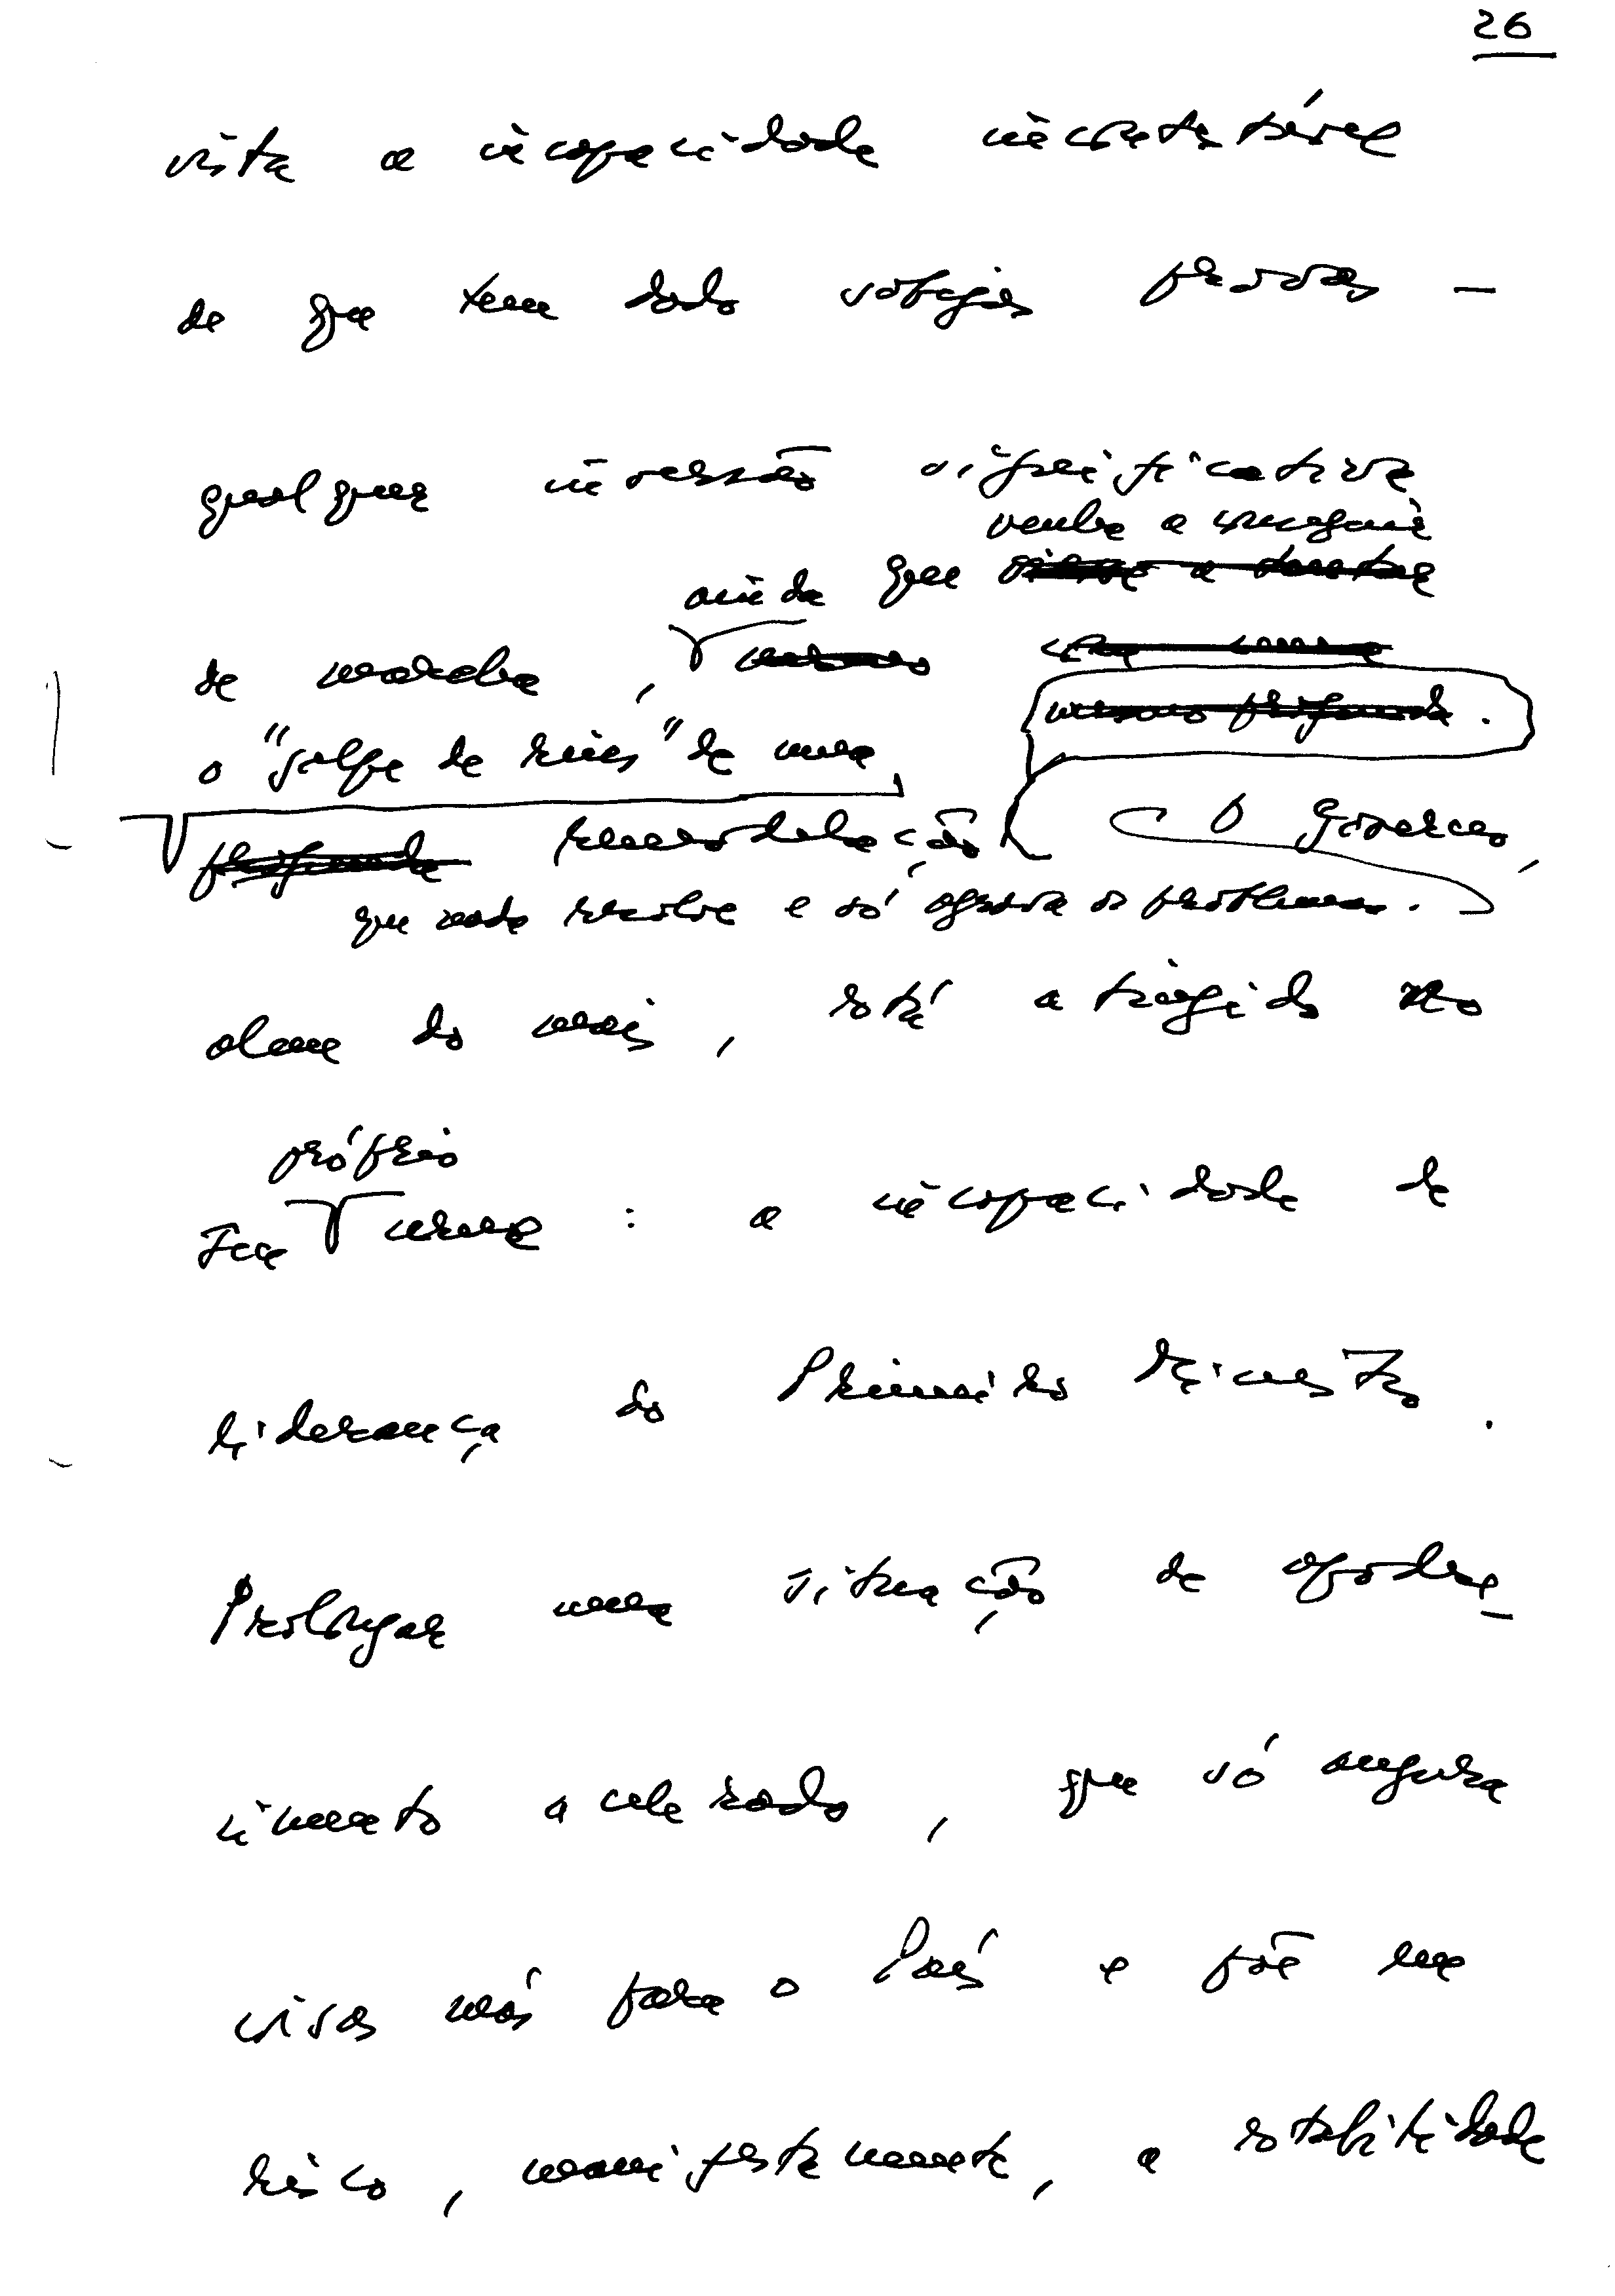 26
vista a incapacidade incontestável
de que tem dado sobejas provas –
qualquer inversão significativa
venha a conseguir
ainda que
de marcha,
o "golpe de rins" de uma
remodelação O Governo,
que nada resolve e só agrava os problemas.
além do mais, está atingido no
próprio
seu cerne : a incapacidade de
liderança do Primeiro Ministro.
Prolongar uma situação de apodre-
cimento acelerado, que só augura
coisas más para o País e põe em
risco, manifestamente, a estabilidade